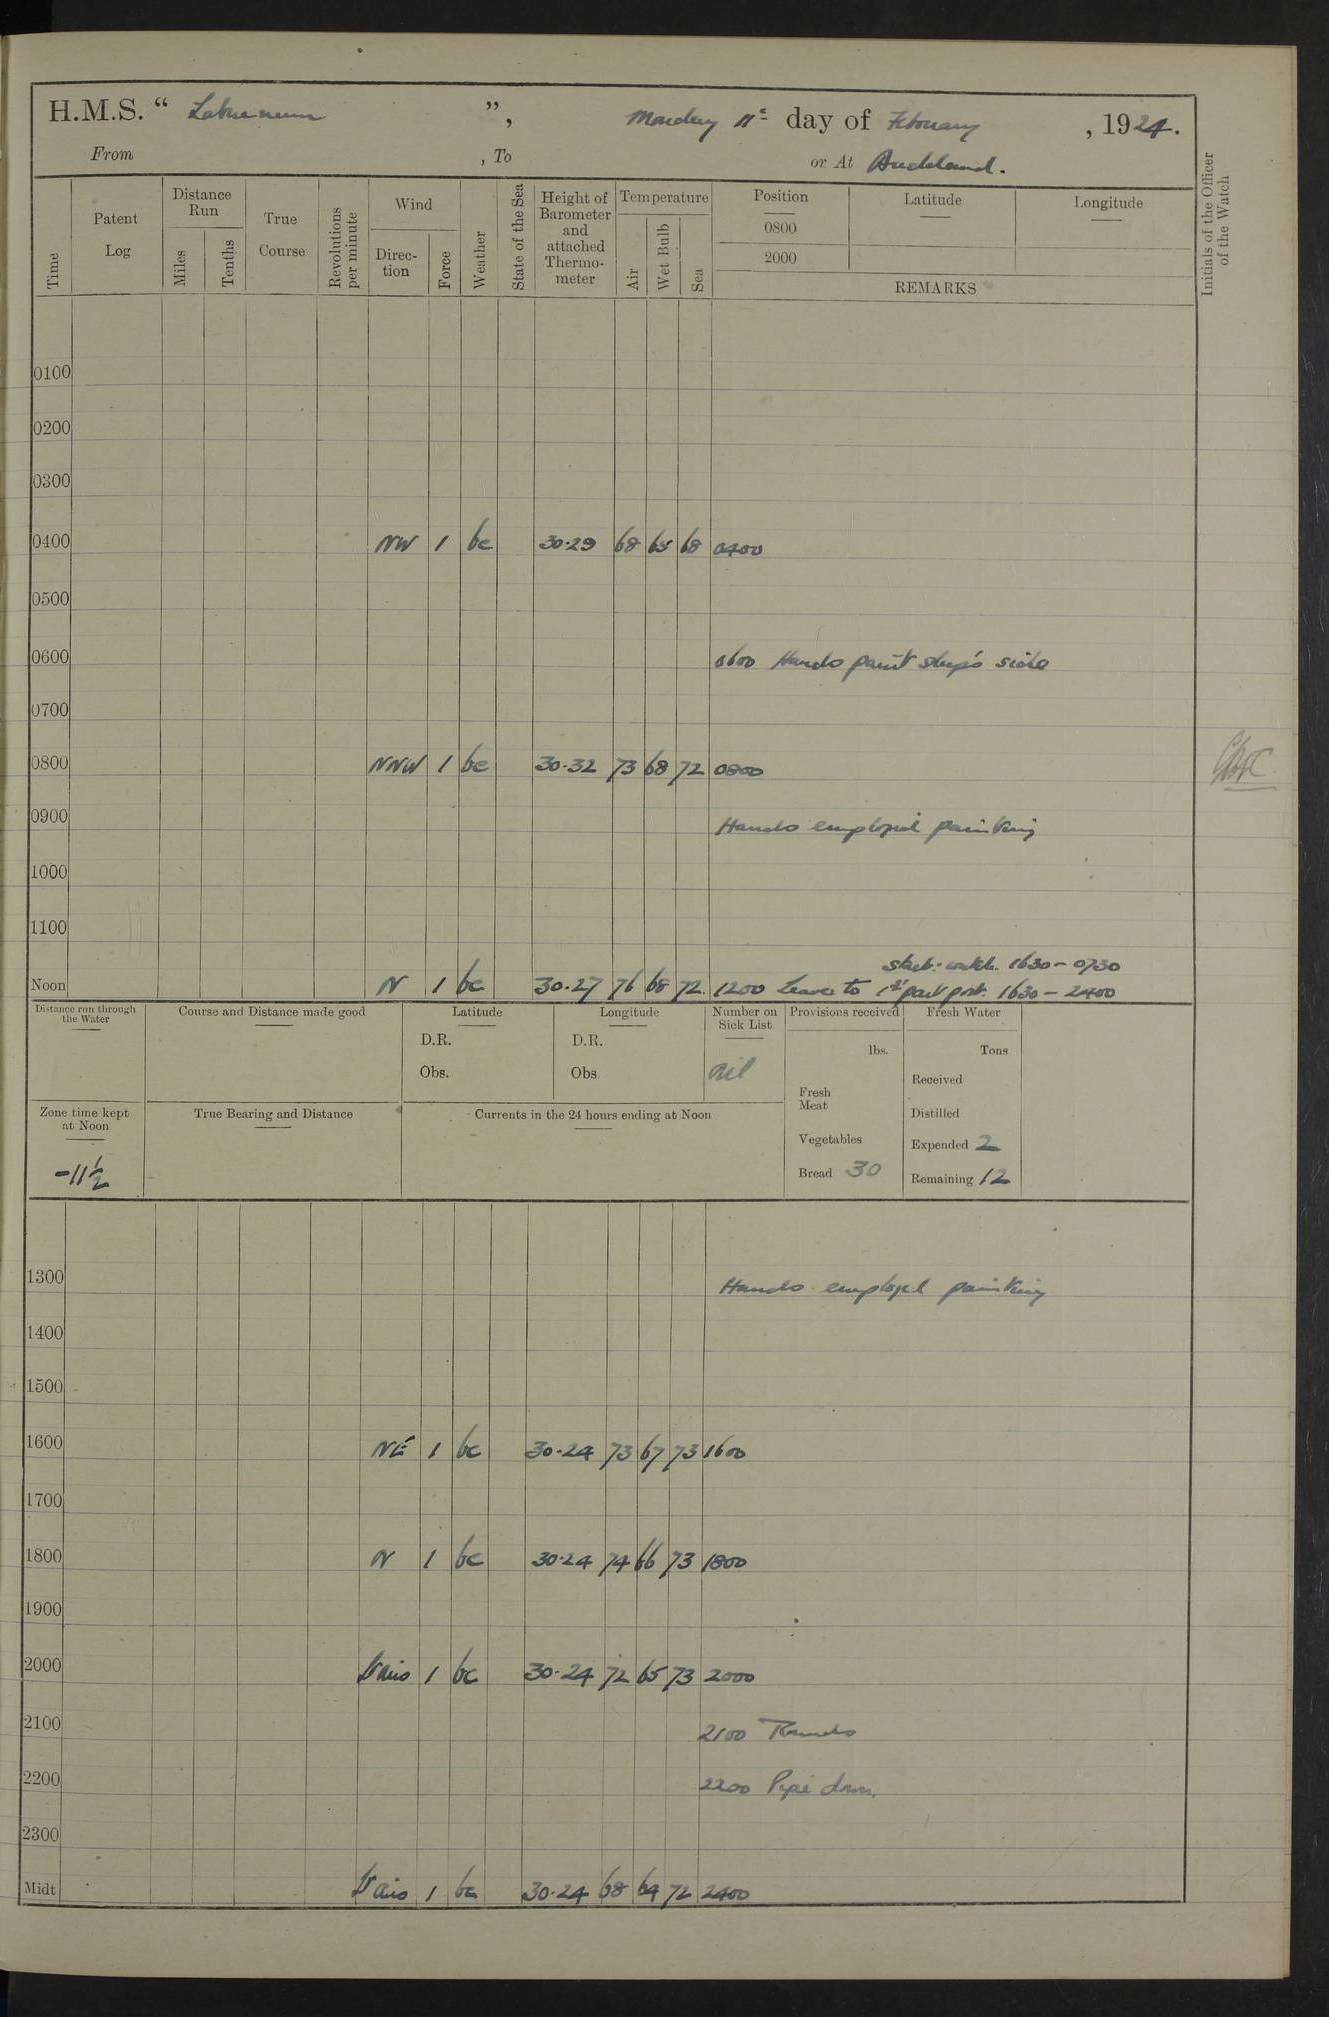 H.M.S. “ Laburnum ”, Monday 11th day of February , 1924.
From , To or At Auckland.
Time
Patent Log
Distance Run
Miles
Tenths
True Course
Revolutions per minute
Wind
Direction
Force
Weather
State of the Sea
Height of Barometer and attached Thermometer
Temperature
Air
Wet Bulb
Sea
Position
0800
2000
Latitude
Longitude
REMARKS
Initials of the Officer of the Watch
0100
0200
0300
0400 NW 1 bc 30·29 68 65 68 0400
0500
0600 0600 Hands paint ship's side
0700
0800 NNW 1 bc 30·32 73 68 72 0800
0900 Hands employed painting
1000
1100
starb: watch. 1630 – 0730
Noon N 1 bc 30·27 76 68 72. 1200 Leave to 1st part port. 1630 – 2400
Distance run through the Water
Course and Distance made good
Latitude
D.R.
Obs.
Longitude
D.R.
Obs.
Number on Sick List
nil
Provisions received
lbs.
Fresh Meat
Vegetables
Bread 30
Fresh Water
Tons
Received
Distilled
Expended 2
Remaining 12
Zone time kept at Noon
-11½
True Bearing and Distance
Currents in the 24 hours ending at Noon
1300 Hands employed painting
1400
1500
1600 NE 1 bc 30·24 73 67 73 1600
1700
1800 N 1 bc 30·24 74 66 73 1800
1900
2000 Vairs 1 bc 30·24 72 65 73 2000
2100 2100 Rounds
2200 2200 Pipe down.
2300
Midt Vairs 1 bc 30·24 68 64 72 2400